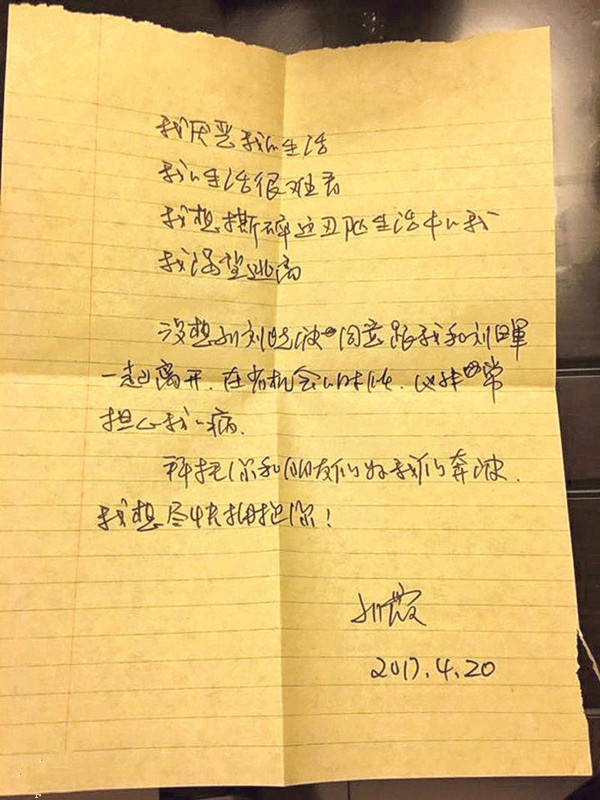 我厌恶我的生活
我的生活很难看
我想撕碎这丑陋生活中的我
我渴望逃离
没想到刘晓波同意跟我和刘晖
一起离开.在有机会的时候.他非常
担心我的病.
拜托你和朋友们为我们奔波.
我想尽快拥抱你!
刘霞
2017.4.20